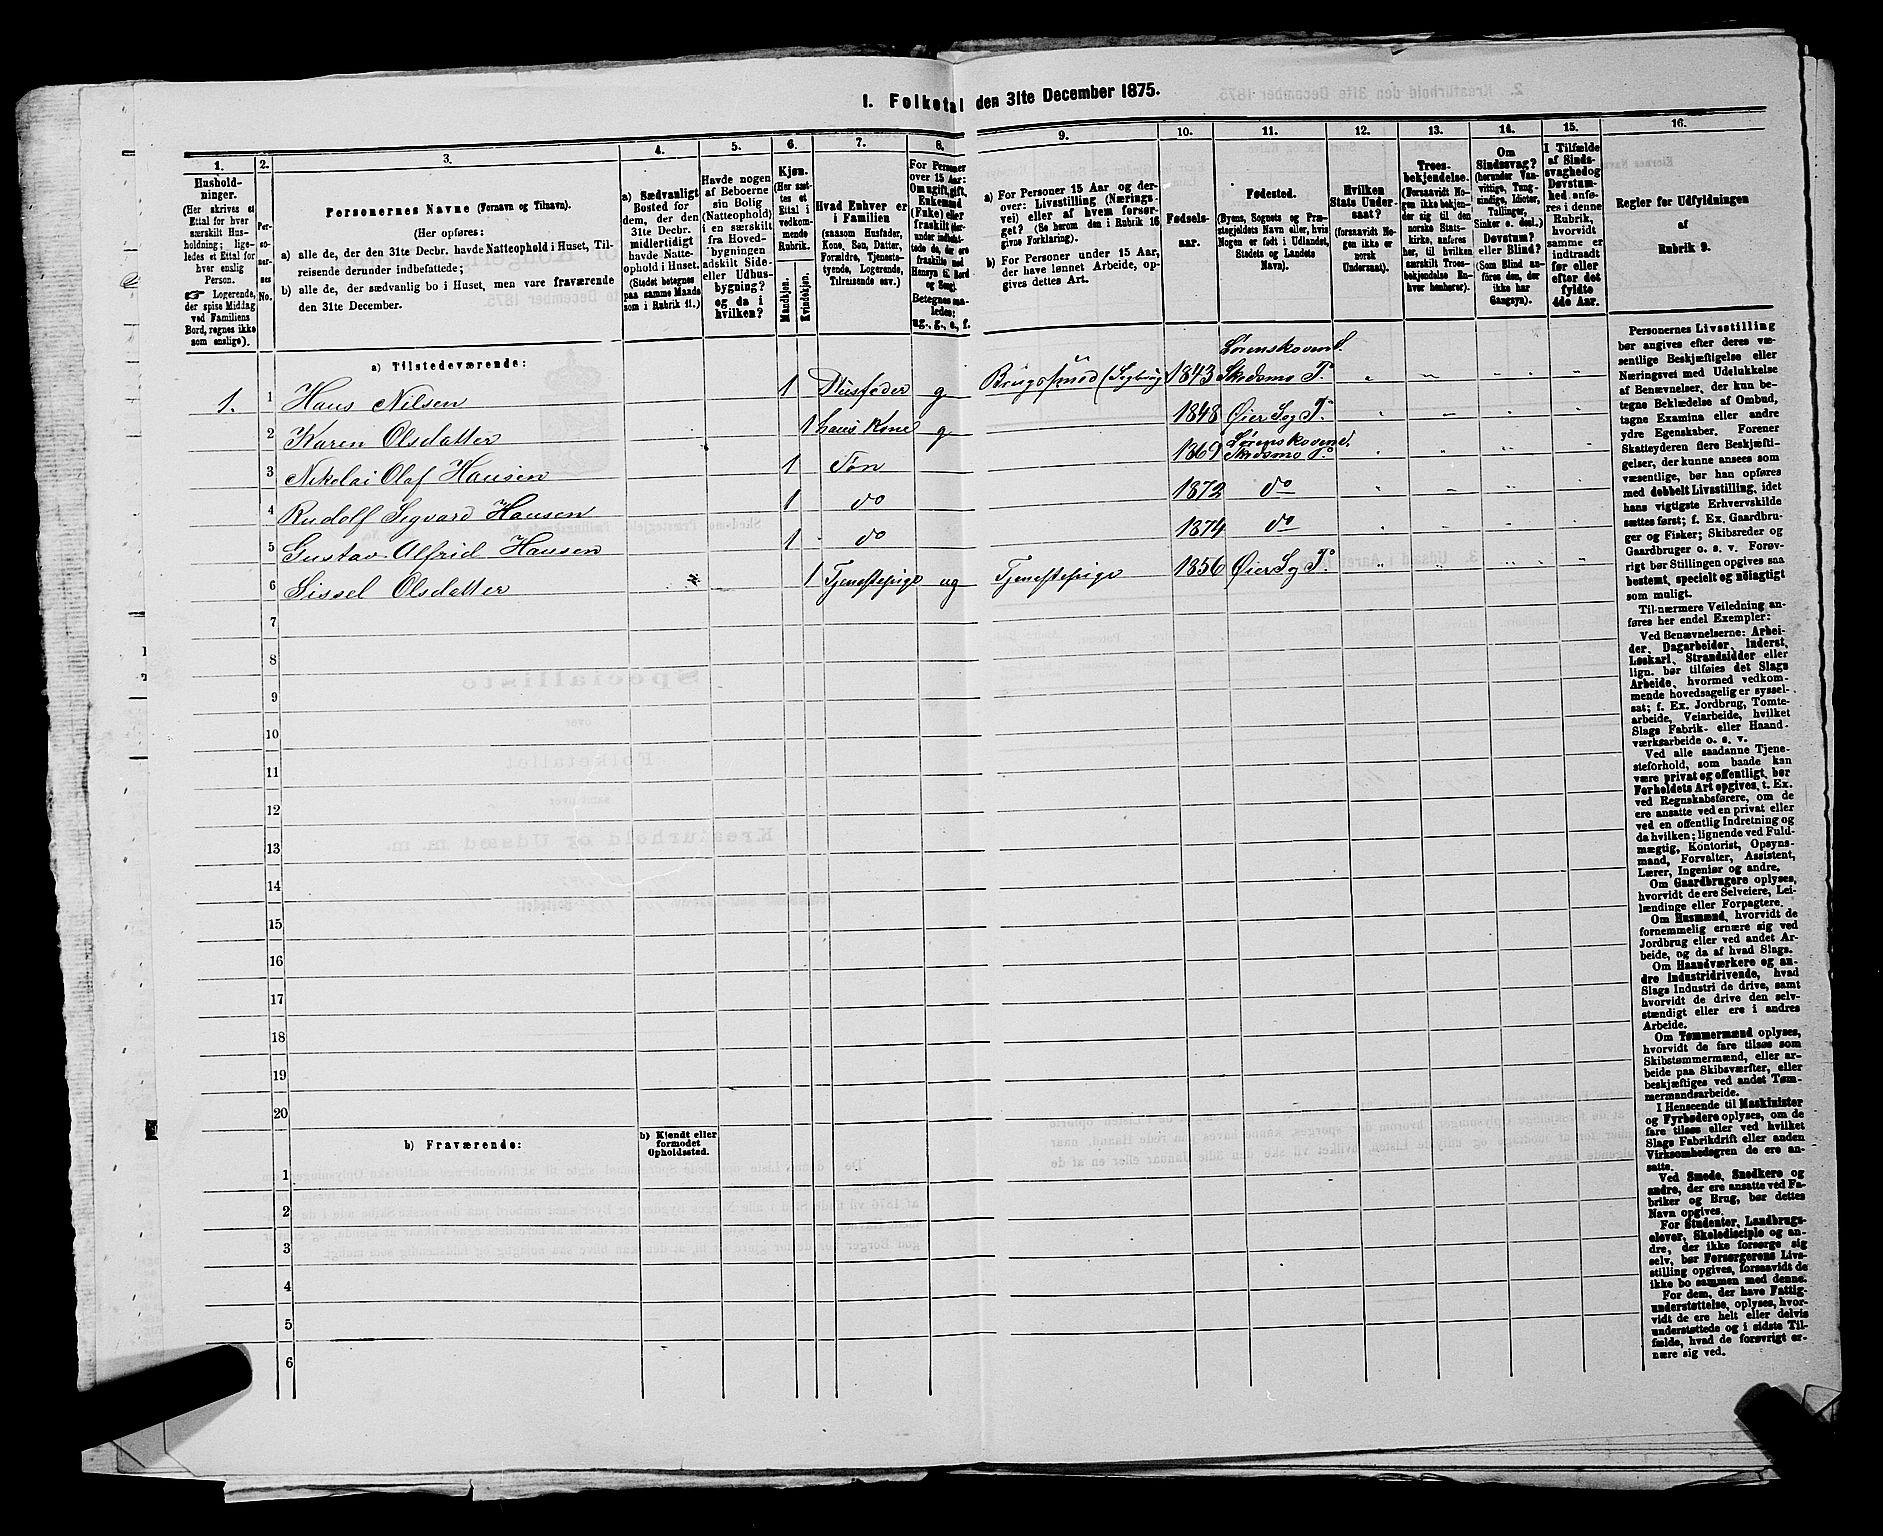 1. Folketal den 31te December 1875.
1. 2. 3. 4. 5. 6. 7. 8. 9. 10. 11. 12. 13. 14. 15. 16.
Hushold-
ninger.
(Her skrives et
Ettal for hver
særskilt Hus-
holdning; lige-
ledes et Ettal for
hver enslig
Person.
☞ Logerende,
der spise Middag
ved Familiens
Bord, regnes ikke
som enslige).
Per-
so-
ner-
nes
No.
Personernes Navne (Fornavn og Tilnavn).
(Her opføres:
a) alle de, der den 31te Decbr. havde Natteophold i Huset, Til-
reisende derunder indbefattede;
b) alle de, der sædvanlig bo i Huset, men vare fraværende
den 31te December.
a) Sædvanligt
Bosted for
dem, der den
31te Decbr.
midlertidigt
havde Natte-
ophold i Huset.
(Stedet betegnes
paa samme Maade
som i Rubrik 11.)
Havde nogen
af Beboerne
sin Bolig
(Natteophold)
i en særskilt
fra Hoved-
bygningen
adskilt Side-
eller Udhus-
bygning?
og da i
hvilken?
Kjøn.
(Her sæt-
tes et
Ettal i
vedkom-
mende
Rubrik.
Mandkjøn.
Kvindekjøn.
Hvad Enhver er
i Familien
(saasom Husfader,
Kone, Søn, Datter,
Forældre, Tjeneste-
tyende, Logerende,
Tilreisende osv.)
For Personer
over 15 Aar:
Om ugift, gift,
Enkemand
(Enke) eller
fraskilt
Betegnes saa-
ledes:
ug., g., e., f.
a) For Personer 15 Aar og der-
over: Livsstilling (Nærings-
vei) eller af hvem forsør-
get? (Se herom den i Rubrik 16
givne Forklaring).
b) For Personer under 15 Aar,
der have lønnet Arbeide, op-
gives dettes Art.
Fødsels-
aar.
Fødested.
(Byens, Sognets og Præ-
stegjeldets Navn eller, hvis
Nogen er født i Udlandet,
Stedets og Landets
Navn).
Hvilken
Stats Under-
saat?
(forsaavidt No-
gen ikke er
norsk
Undersaat).
Troes-
bekjendelse.
(Forsaavidt No-
gen ikke bekjen-
der sig til den
norske Stats-
kirke, anføres
her, til hvilken
særskilt Troes-
bekjendelse En-
hver henhører).
Om
Sindssvag?
(herunder Van-
vittige, Tung-
sindige, Idioter,
Tullinger,
Sinker o. desl.)
Døvstum?
eller Blind?
(Som Blind an-
føres den, der
ikke har
Gangsyn).
I Tilfælde
af Sinds-
svaghed og
Døvstum-
hed anfø-
res i denne
Rubrik,
hvorvidt
samme er
indtraadt
før eller
efter det
fyldte
4de Aar.
Regler for Udfyldningen
af
Rubrik 9.
a) Tilstedeværende:
1. 1 Hans Nilsen 1 Husfader g Brugssmed (Sagbrug) 1843 Lørenskoven S. Skedsmo P.
2 Karen Olsdatter 1 hans Kone g 1848 Øier Sog P.
3 Nikolai Olaf Hansen 1 Søn 1869 Lørenskoven S. Skedsmo P.
4 Rudolf Segvard Hansen 1 do 1872 do
5 Gustav Alfrid Hansen 1 do 1874 do
6 Sissel Olsdatter 1 Tjenestepige ug Tjenestepige 1856 Øier Sog P.
7
8
9
10
11
12
13
14
15
16
17
18
19
20
b) Fraværende:
b) Kjendt eller
formodet
Opholdssted.
1
2
3
4
5
6
Personernes Livsstilling
bør angives efter deres væ-
sentlige Beskjæftigelse eller
Næringsvei med Udelukkelse
af Benævnelser, der kun be-
tegne Beklædelse af Ombud,
tagne Examina eller andre
ydre Egenskaber. Forener
Skatteyderen flere Beskjæfti-
gelser, der kunne ansees som
væsentlige, bør han opføres
med dobbelt Livsstilling, idet
hans vigtigste Erhvervskilde
sættes først; f. Ex. Gaardbru-
ger og Fisker; Skibsreder og
Gaardbruger o. s. v. Forøv-
rigt bør Stillingen opgives saa
bestemt, specielt og nöiagtigt
som muligt.
Til nærmere Veiledning an-
føres her endel Exempler:
Ved Benævnelserne: Arbei-
der, Dagarbeider, Inderst,
Løskarl, Strandsidder eller
lign. bør tilføies det Slags
Arbeide, hvormed vedkom-
mende hovedsagelig er syssel-
sat; f. Ex. Jordbrug, Tomte-
arbeide, Veiarbeide, hvilket
Slags Fabrik- eller Haand-
værksarbeide o. s. v.
Ved alle saadanne Tjene-
steforhold, som baade kan
være privat og offentligt, bør
Forholdets Art opgives, t. Ex.
ved Regnskabsførere, om de
ere ansatte ved en privat eller
ved en offentlig Indretning og
da hvilken; lignende ved Fuld-
mægtig, Kontorist, Opsyns-
mand, Forvalter, Assistent,
Lærer, Ingeniør og andre.
Om Gaardbrugere oplyses,
hvorvidt de ere Selveiere, Lei-
lændinge eller Forpagtere.
Om Husmænd, hvorvidt de
fornemmelig ernære sig ved
Jordbrug eller ved andet Ar-
beide, og da af hvad Slags.
Om Haandværkere og an-
dre Industridrivende, hvad
Slags Industri de drive, samt
hvorvidt de drive den selv-
stændigt eller ere i andres
Arbeide.
Om Tømmermænd oplyses,
hvorvidt de fare tilsøs som
Skibstømmermænd, eller ar-
beide paa Skibsværfter, eller
beskjæftiges ved andet Tøm-
mermandsarbeide.
I Henseende til Maskinister
og Fyrbødere oplyses, om de
fare tilsøs eller ved hvilket
Slags Fabrikdrift eller anden
Virksomhedsgren de ere an-
satte.
Ved Smede, Snedkere og
andre, der ere ansatte ved Fa-
briker og Brug, bør dettes
Navn opgives.
For Studenter, Landbrugs-
elever, Skoledisciple og an-
dre, der ikke forsørge sig
selv, bør Forsørgerens Livs-
stilling opgives, forsaavidt de
ikke bo sammen med denne.
For dem, der have Fattig-
understøttelse, oplyses, hvor-
vidt de ere helt eller delvis
understøttede og i sidste Til-
fælde, hvad de forøvrigt er-
nære sig ved.